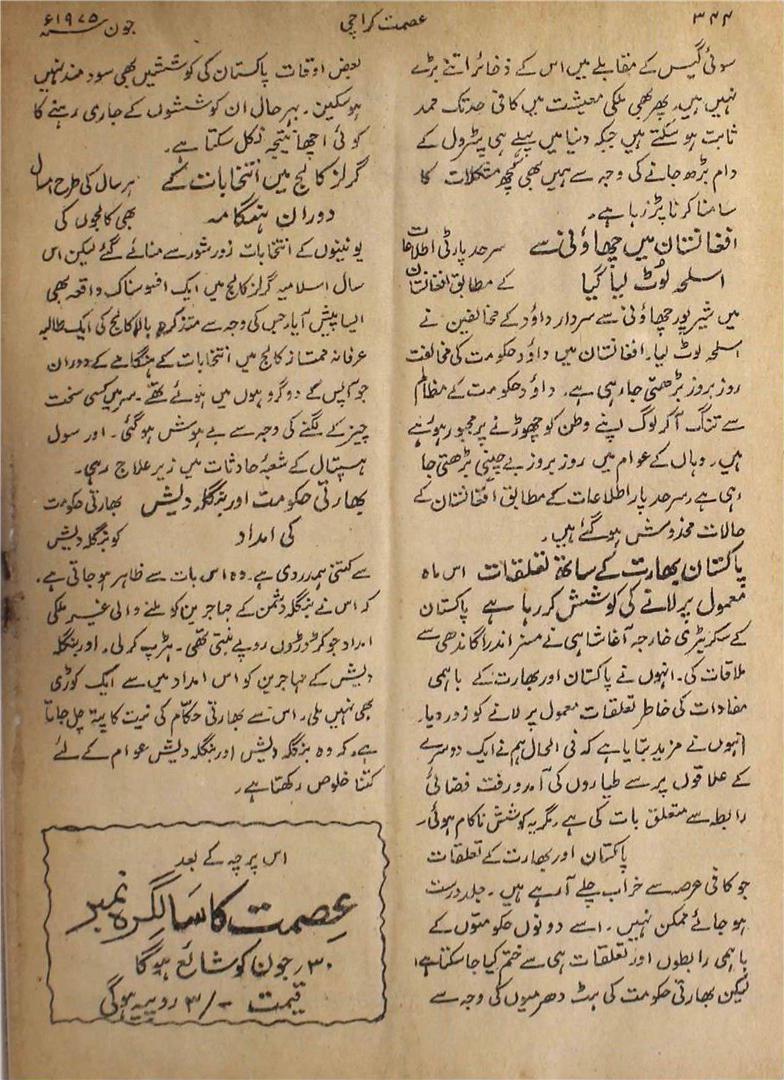 ۳۴۴
عصمت کراچی
جون ۱۹۷۵ء
سوئی گیس کے مقابلے میں اس کے ذخائر اتنے بڑے
نہیں ہیں۔ پھر بھی ملکی معیشت میں کافی حد تک ممد
ثابت ہو سکتے ہیں جبکہ دنیا میں پہلے ہی پٹرول کے
دام بڑھ جانے کی وجہ سے ہمیں بھی کچھ مشکلات کا
سامنا کرنا پڑ رہا ہے۔
افغانستان میں چھاؤنی سے سرحد پار کی اطلاعات
اسلحہ لوٹ لیا گیا کے مطابق افغانستان
میں شیرپور چھاؤنی سے سردار داؤد کے مخالفین نے
اسلحہ لوٹ لیا۔ افغانستان میں داؤد حکومت کی مخالفت
روز بروز بڑھتی جا رہی ہے۔ داؤد حکومت کے مظالم
سے تنگ آکر لوگ اپنے وطن کو چھوڑنے پر مجبور ہو گئے
ہیں۔ وہاں کے عوام میں روز بروز بے چینی بڑھتی جا
رہی ہے۔ سرحد پار اطلاعات کے مطابق افغانستان کے
حالات مخدوش ہو گئے ہیں۔
پاکستان بھارت کے ساتھ تعلقات اس ماہ
معمول پر لانے کی کوشش کر رہا ہے پاکستان
کے سکریٹری خارجہ آغا شاہی نے مسز اندرا گاندھی سے
ملاقات کی۔ انہوں نے پاکستان اور بھارت کے باہمی
مفادات کی خاطر تعلقات معمول پر لانے کو زور دیا۔
انہوں نے مزید بتایا ہے کہ فی الحال ہم نے ایک دوسرے
کے علاقوں پر سے طیاروں کی آمدورفت فضائی
رابطہ سے متعلق بات کی ہے۔ مگر یہ کوشش ناکام ہوئی۔
پاکستان اور بھارت کے تعلقات
جو کافی عرصہ سے خراب چلے آ رہے ہیں۔ جلد درست
ہو جائے ممکن نہیں۔ اسے دونوں حکومتوں کے
باہمی رابطوں اور تعلقات ہی سے ختم کیا جا سکتا ہے۔
لیکن بھارتی حکومت کی ہٹ دھرمیوں کی وجہ سے
بعض اوقات پاکستان کی کوششیں بھی سود مند نہیں
ہو سکیں۔ بہرحال ان کوششوں کے جاری رہنے کا
کوئی اچھا نتیجہ نکل سکتا ہے۔
گرلز کالج میں انتخابات کے ہر سال کی طرح امسال
دوران ہنگامہ بھی کالجوں کی
یونینوں کے انتخابات زور شور سے منائے گئے لیکن اس
سال اسلامیہ گرلز کالج میں ایک افسوسناک واقعہ بھی
ایسا پیش آیا۔ جس کی وجہ سے متذکرہ بالا کالج کی ایک طالبہ
عرفانہ ممتاز کالج میں انتخابات کے ہنگامے کے دوران
جو آپس کے دو گروہوں میں ہوئے تھے۔ سر میں کسی سخت
چیز کے لگنے کی وجہ سے بے ہوش ہو گئی۔ اور سول
ہسپتال کے شعبۂ حادثات میں زیر علاج رہی۔
بھارتی حکومت اور بنگلہ دیش بھارتی حکومت
کی امداد کو بنگلہ دیش
سے کتنی ہمدردی ہے۔ وہ اس بات سے ظاہر ہو جاتی ہے۔
کہ اس نے بنگلہ دشمن کے مہاجرین کو ملنے والی غیر ملکی
امداد جو کروڑوں روپے بنتی تھی۔ ہڑپ کر لی۔ اور بنگلہ
دیش کے مہاجرین کو اس امداد میں سے ایک کوڑی
بھی نہیں ملی۔ اس سے بھارتی حکام کی نیت کا پتہ چل جاتا
ہے۔ کہ وہ بنگلہ دیش اور بنگلہ دیش عوام کے لئے
کتنا خلوص رکھتا ہے۔
اس پرچہ کے بعد
عصمت کا سالگرہ نمبر
۳۰ جون کو شائع ہوگا
قیمت -/۳ روپیہ ہوگی